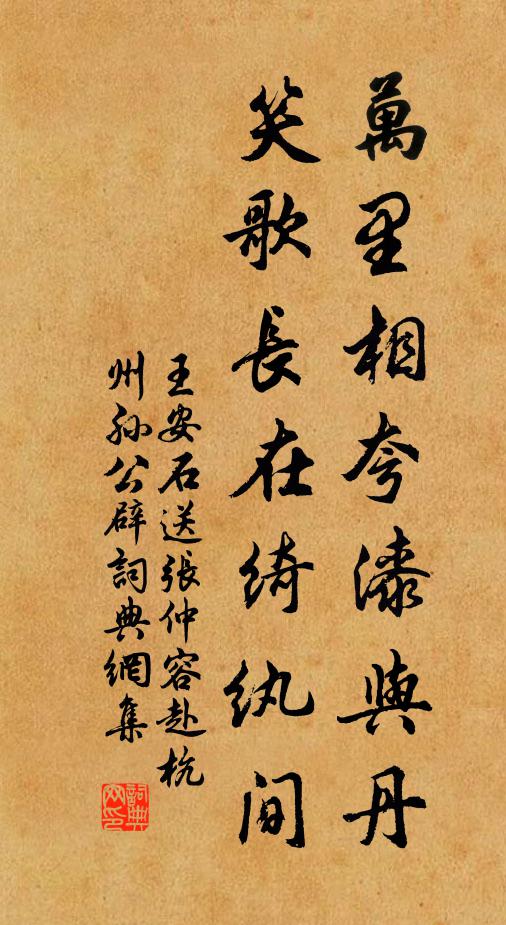 萬里相夸漆與丹
笑歌長在綺紈间
王安石送張仲容赴杭
州孙公辟詞典網集
詞典
网印